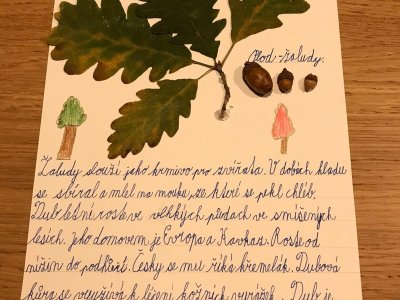 Plod - žaludy.
Žaludy slouží jako krmivo pro zvířata. V dobách hladu
se sbíral a mlel na mouku, ze které se pekl chléb.
Dub letní roste ve vlhkých půdách ve smíšených
lesích. Jeho domovem je Evropa a Kavkaz. Roste od
nížin do podhůří. Česky se mu říká křemelák. Dubová
kůra se využívá k léčení kožních vyrážek. Dub je